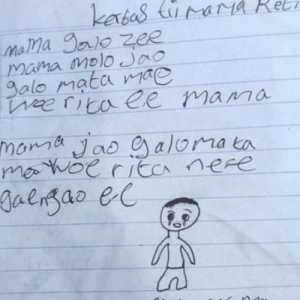 kertas tii mama Reti
mama galo zee
mama molo jao
galo mata mae
woe rita ee mama
mama jao galo mata
ma woe rita nere
ee